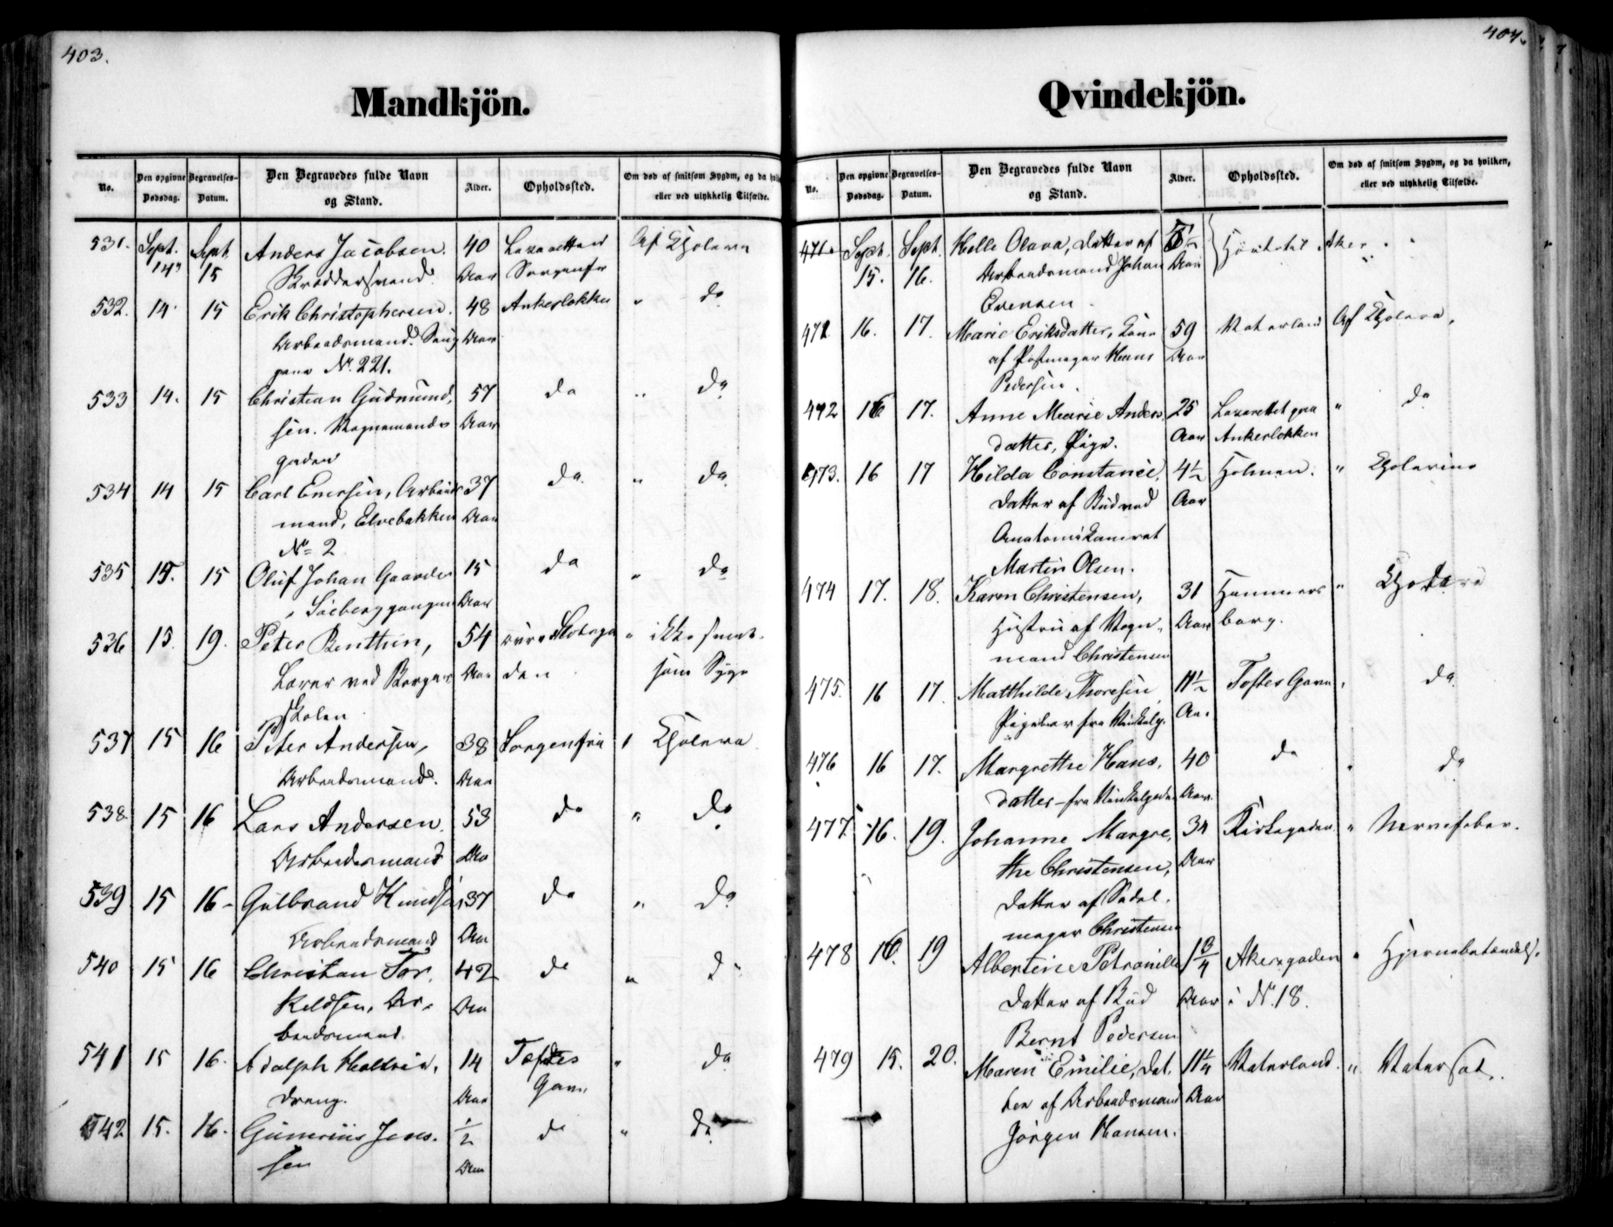 403.
Mandkjön.
No. Den opgivne Dødsdag. Begravelses-Datum. Den Begravedes fulde Navn og Stand. Alder. Opholdssted. Om død af smitsom Sygdm, og da hvilken, eller ved ulykkelig Tilfælde.
531. Sept. 14 Sept. 15 Anders Jacobsen. 40 Lazarettet Af Cholera
Skræddersvend. Aar Sorgenfri
532. 14. 15 Erik Christophersen. 48 Ankerløkken " do
Arbeidsmand. Aar
No. 221.
533 14. 15 Christian Gudmund, 57 do " do
sen. Vognmands Aar
gaden
534 14 15 Carl Enersen, Arbeids 37 do " do
mand, Elvebakken Aar
No 2
535 15. 15 Oluf Johan Gaarder 15 do " do
Aar
536 15 19. Peter Benthin, 54 øvre Slotsga " ikke smit
Lærer ved Borger Aar den som Syge
skolen
537 15 16 Peter Andersen, 38 Sorgenfrie " Cholera
Arbeidsmand. Aar
538 15 16 Lars Andersen. 53 do " do
Arbeidsmand Aar
539 15 16 Gulbrand Knudsen 37 do " do
Arbeidsmand Aar
540 15 16 Christian Tor. 42 do " do
kildsen, Ar. Aar
beidsmand
541 15 16. Adolph Halvsen, 14 Toftes " do
dreng. Aar Gave
542 15. 16. Gunerius Jens. 1/2 do " do
sen Aar
404.
Qvindekjön.
No. Den opgivne Dødsdag. Begravelses-Datum. Den Begravedes fulde Navn og Stand. Alder. Opholdssted. Om død af smitsom Sygdm, og da hvilken, eller ved ulykkelig Tilfælde.
471. Sept. 15. Sept. 16. Helle Olava, Datter af
Arbeidsmand Johan Aar
Evensen
471 16. 17. Marie Eriksdatter, Kone 59 Vaterland Af Cholera.
af Hans Aar
Pedersen.
472 16 17. Anne Marie Anders 25 Lazarettet paa " do
datter, Pige. Aar Ankerløkken
473. 16 17 Hilda Constance, 4 1/2 Holmen. " Cholerine
Datter af Bud ved Aar
Anatomikamret
Martin Olsen.
474 17. 18. Karen Christensen, 31 Hammers " Cholera
Hustru af Vogn Aar borg.
mand Christensen
475. 16 17. Matthilde Thoresen, 11 1/2 Toftes Gave " do
Aar
476 16 17. Margrethe Hans. 40 do " do
datter Aar
477. 16. 19. Johanne Margre, 34 Kirkegaden " Nervefeber.
the Christensen, Aar
Datter af Sadel.
mager Christensen
478 16. 19 Albertine Petronille 1 3/4 Akersgaden " Hjernebetændels.
Datter af Bud Aar i No. 18.
Bernt Pedersen
479 15. 20. Maren Emilie, Dat. 11 1/4 Vaterland. "
ter af Arbeidsmand Aar
Jørgen Hansen.